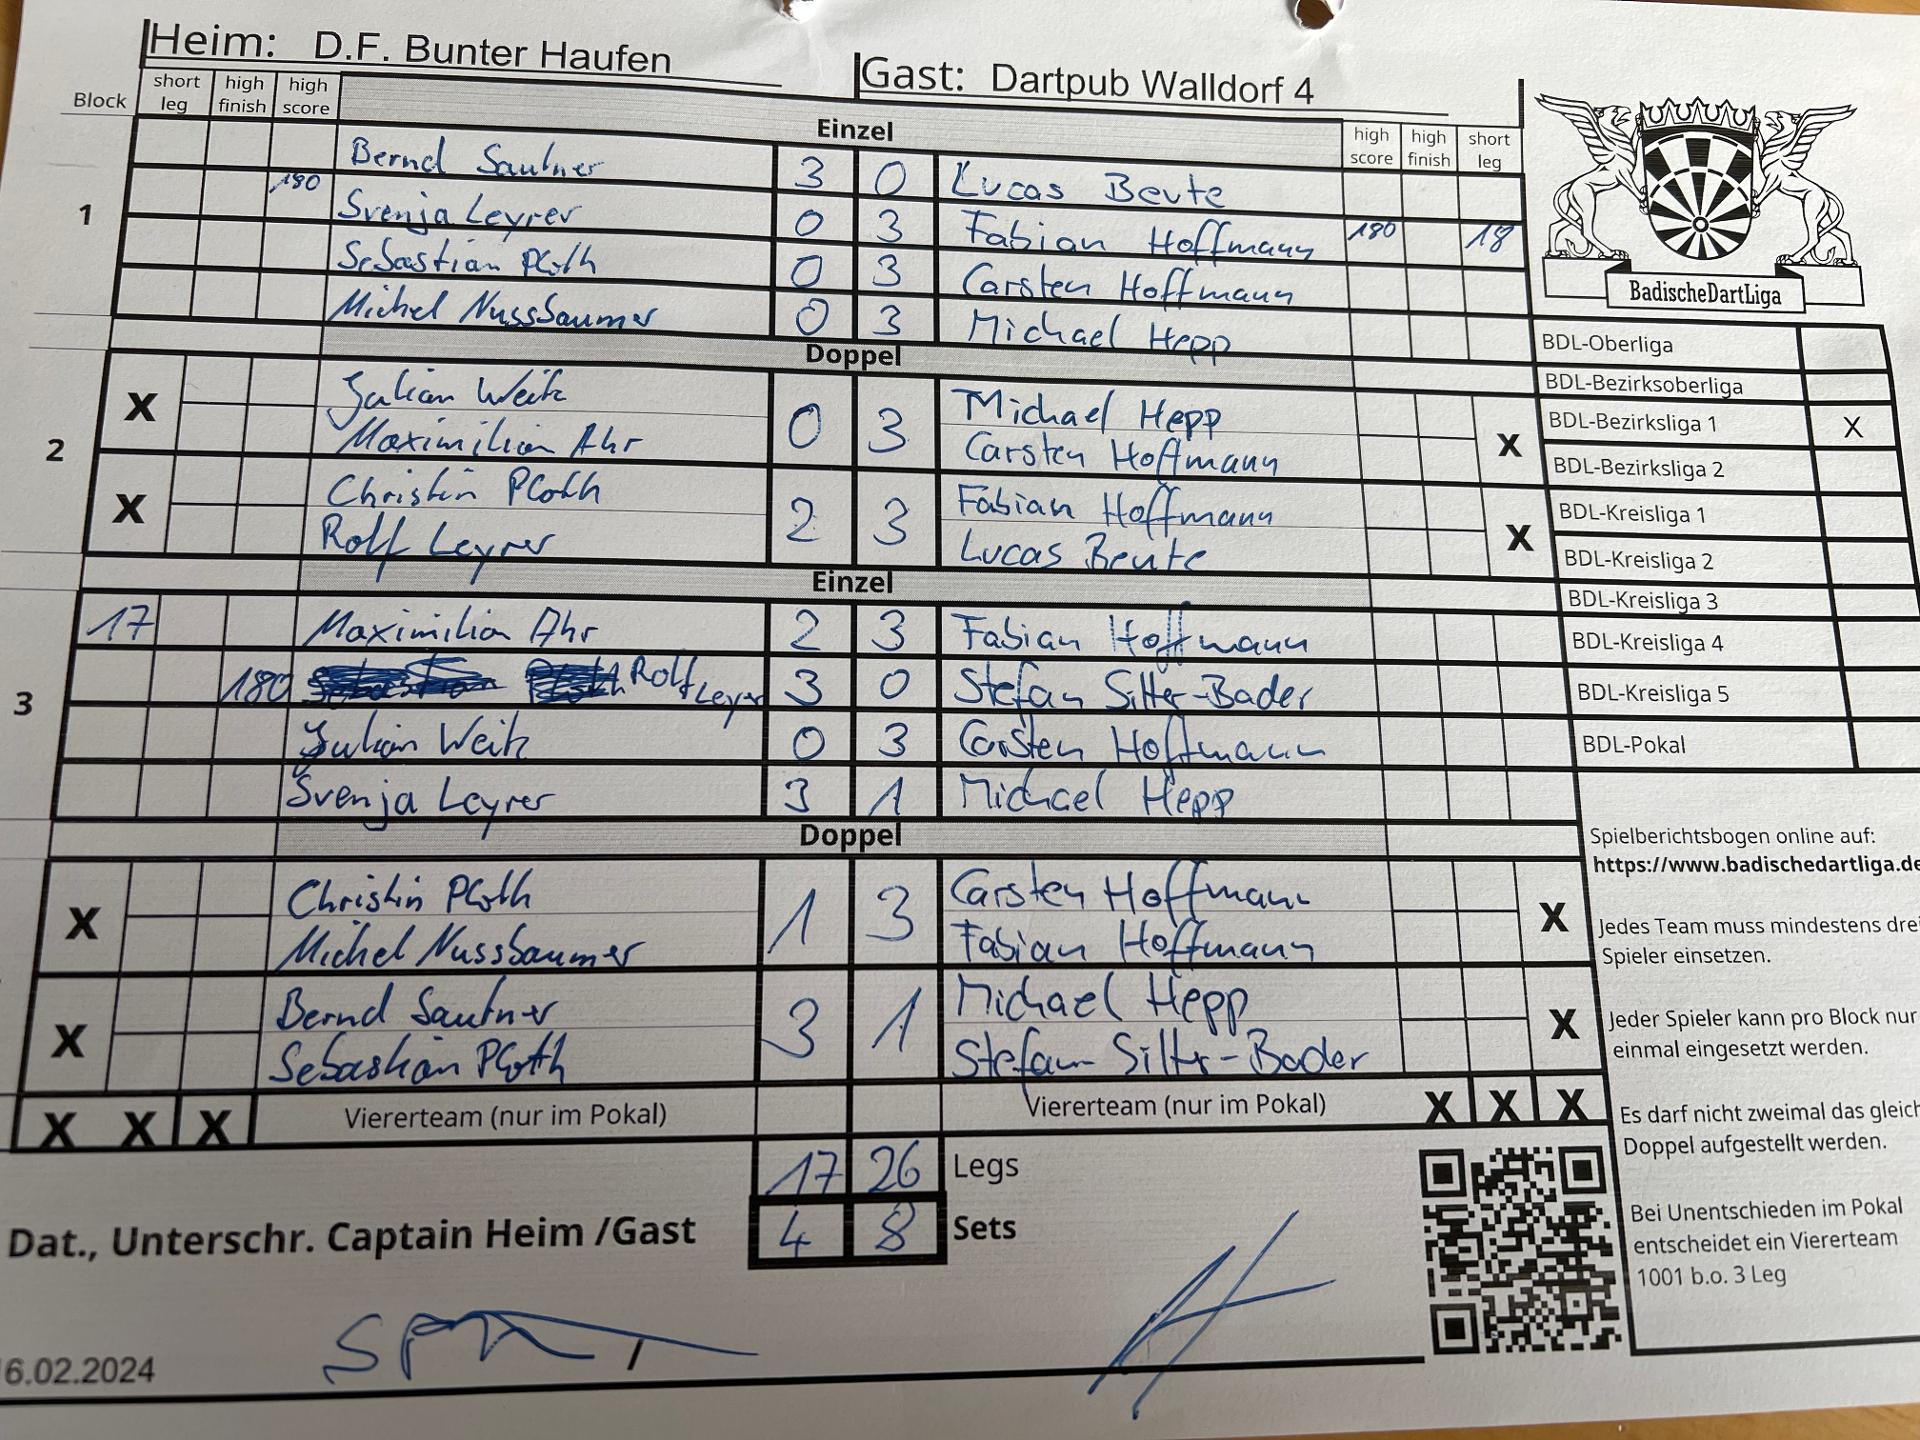 Heim: D.F. Bunter Haufen Gast: Dartpub Walldorf 4
Block short leg high finish high score Einzel high score high finish short leg
1
Bernd Sautner 3 0 Lucas Beute
180 Svenja Leyrer 0 3 Fabian Hoffmann 180 18
Sebastian Ploth 0 3 Carsten Hoffmann
Michel Nussbaumer 0 3 Michael Hepp
BadischeDartLiga
Doppel
2
X Julian Weik 0 3 Michael Hepp X
Maximilian Ahr Carsten Hoffmann
X Christin Ploth 2 3 Fabian Hoffmann X
Rolf Leyrer Lucas Beute
Einzel
3
17 Maximilian Ahr 2 3 Fabian Hoffmann
180 Rolf Leyrer 3 0 Stefan Sitter-Bader
Julian Weik 0 3 Carsten Hoffmann
Svenja Leyrer 3 1 Michael Hepp
Doppel
X Christin Ploth 1 3 Carsten Hoffmann X
Michel Nussbaumer Fabian Hoffmann
X Bernd Sautner 3 1 Michael Hepp X
Sebastian Ploth Stefan Sitter-Bader
X X X Viererteam (nur im Pokal) Viererteam (nur im Pokal) X X X
17 26 Legs
Dat., Unterschr. Captain Heim /Gast 4 8 Sets
6.02.2024
BDL-Oberliga
BDL-Bezirksoberliga
BDL-Bezirksliga 1 X
BDL-Bezirksliga 2
BDL-Kreisliga 1
BDL-Kreisliga 2
BDL-Kreisliga 3
BDL-Kreisliga 4
BDL-Kreisliga 5
BDL-Pokal
Spielberichtsbogen online auf:
https://www.badischedartliga.de
Jedes Team muss mindestens drei
Spieler einsetzen.
Jeder Spieler kann pro Block nur
einmal eingesetzt werden.
Es darf nicht zweimal das gleich
Doppel aufgestellt werden.
Bei Unentschieden im Pokal
entscheidet ein Viererteam
1001 b.o. 3 Leg